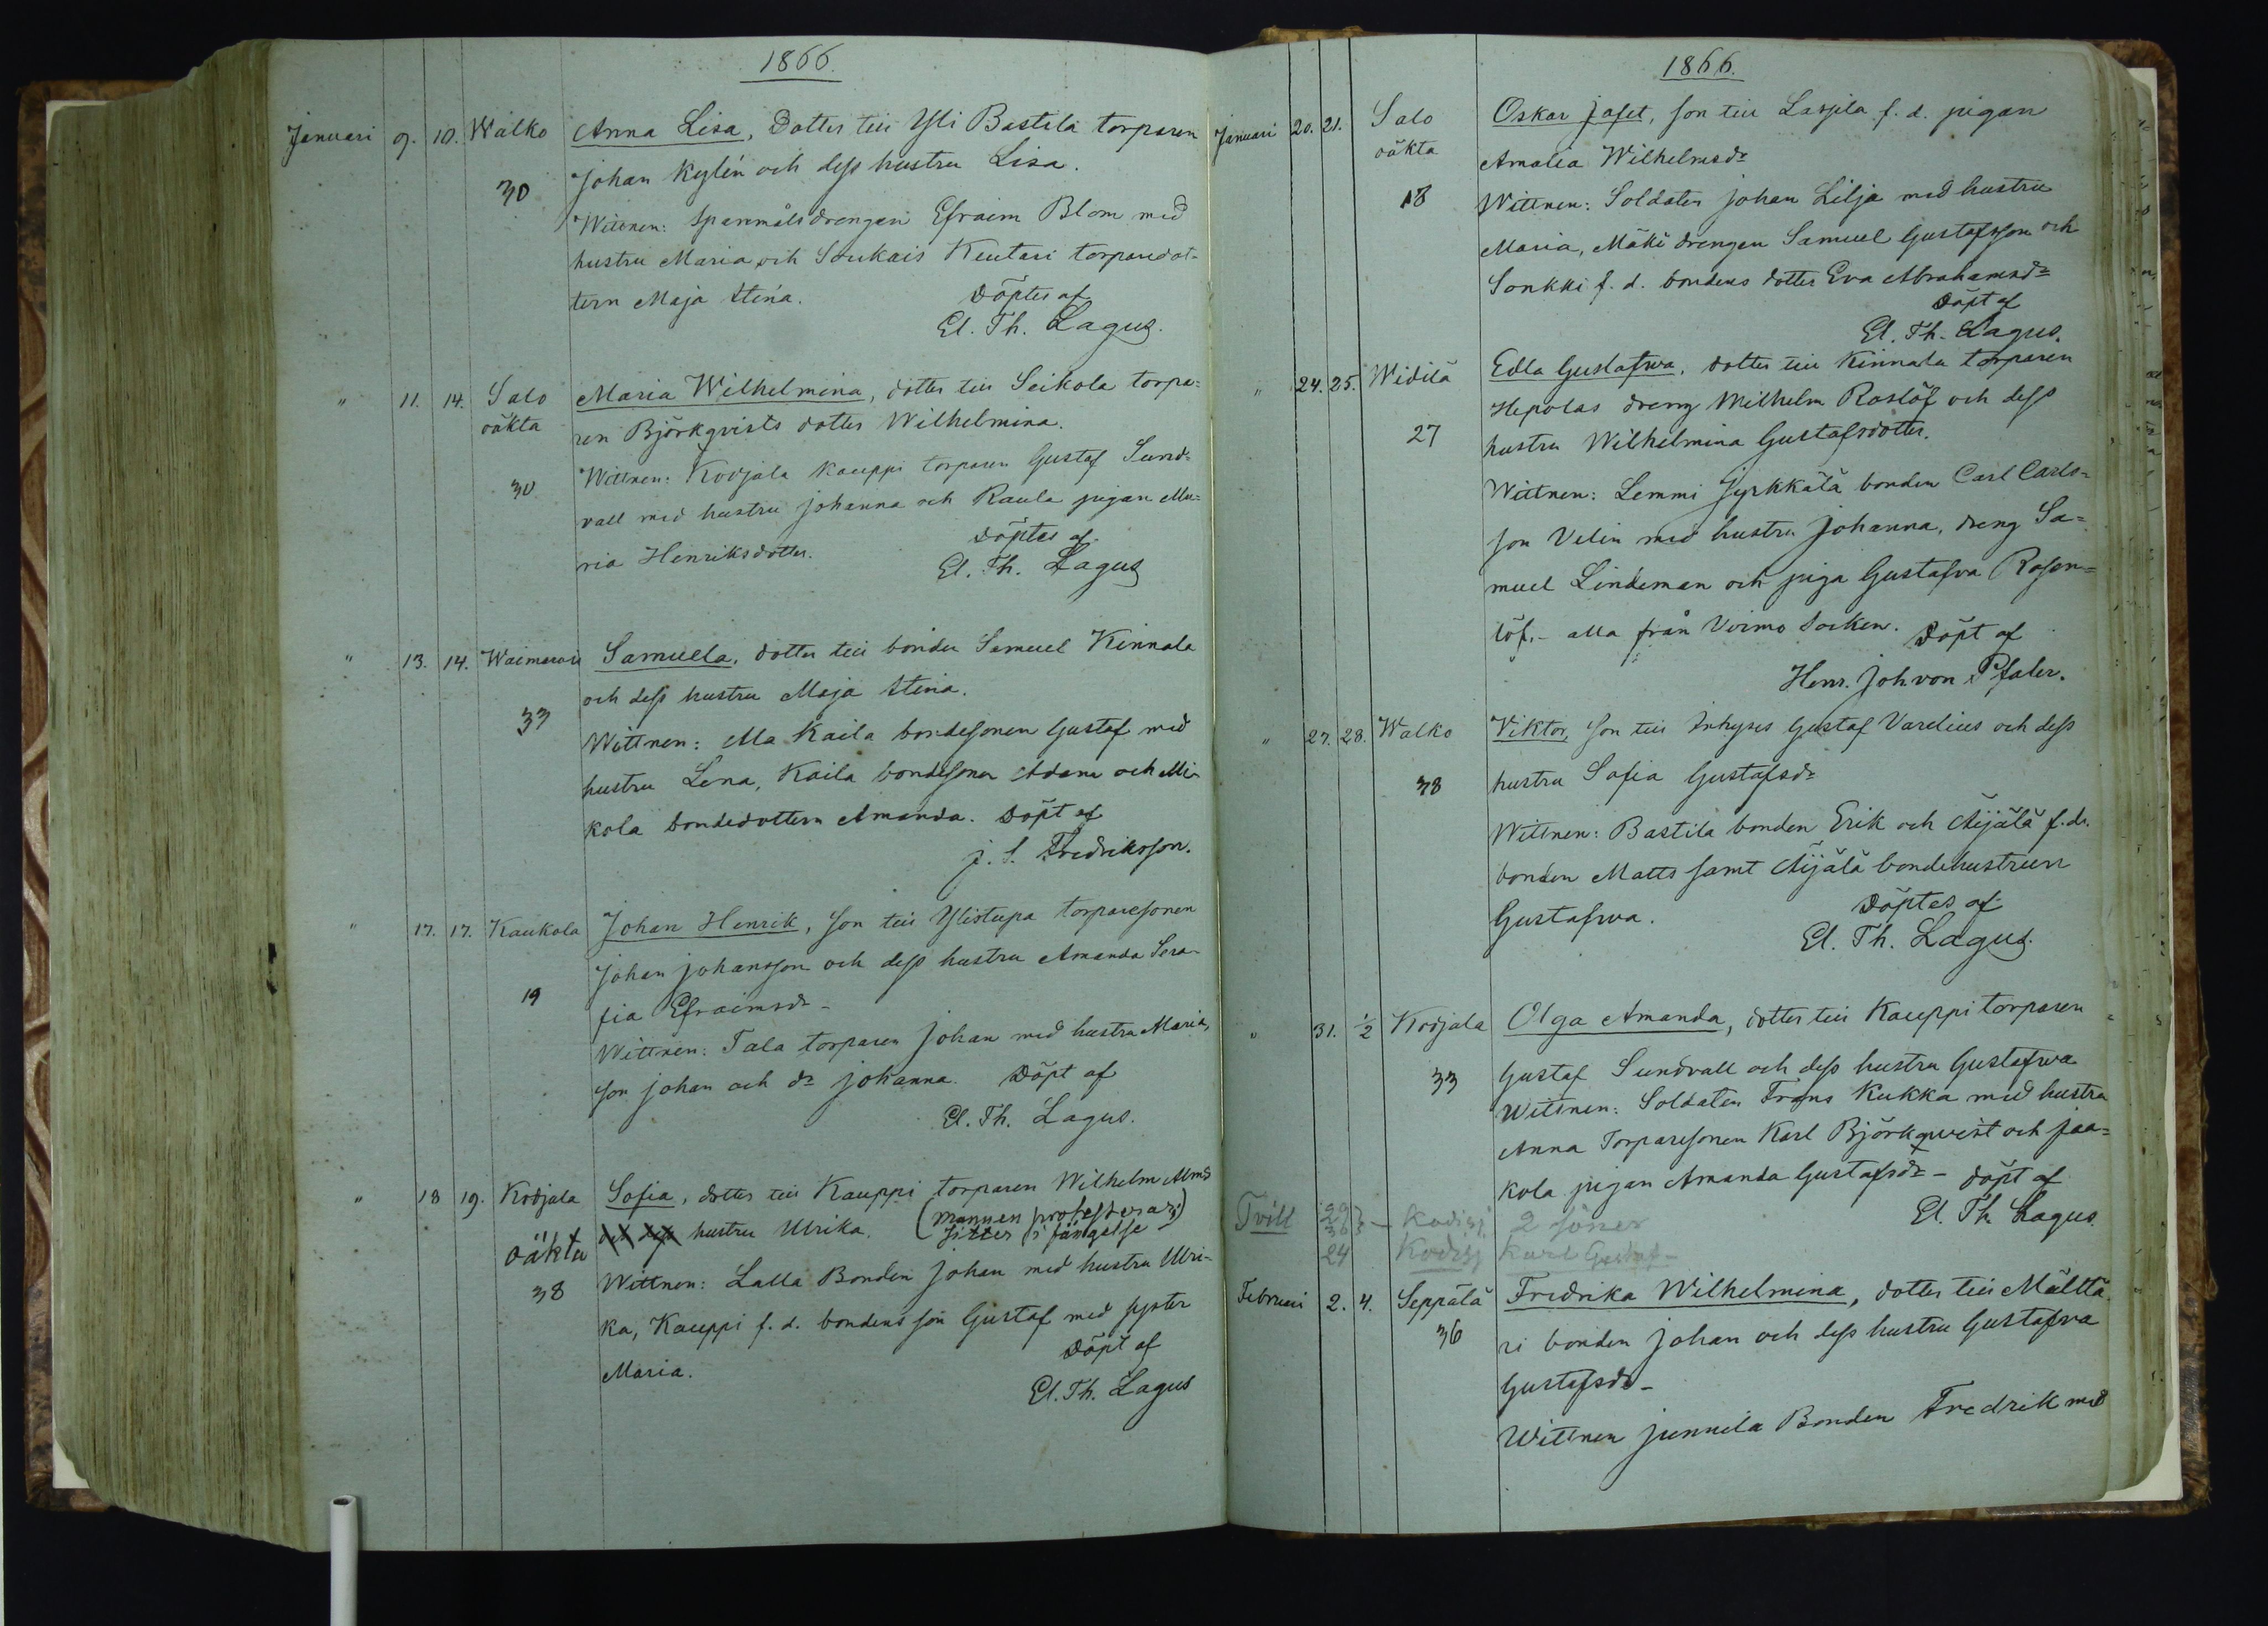 1866.
Januari 9. 10. Walko Anna Lisa, Dotter till Yli Bastila torparen
Johan Kylén och dess hustru Lisa.
30
Wittnen: Spanmålsdrengen Efraim Blom med
hustru Maria och Soukais Keutari torparedot-
tern Maja Stina. Döptes af
El. Th. Lagus.
" 11. 14. Salo Maria Wilhelmina, dotter till Seikola torpa-
oäkta ren Björkqvists dotter Wilhelmina.
30 Wittnen: Kodjala Kauppi torparen Gustaf Sund-
vall med hustru Johanna och Raula pigan Ma-
ria Henriksdotter. Döptes af
El. Th. Lagus
" 13. 14. Waimaro Samuela, dotter till bonden Samuel Kinnala
och dess hustru Maja Stina.
33
Wittnen: Ala Kaila bondesonen Gustaf med
hustru Lena, Kaila bondesonen Adam och Mi-
kola bondedottern Amanda. Döpt af
J. S. Fredriksson.
" 17. 17. Kaukola Johan Henrik, son till Ylistupa torparesonen
Johan Johansson och dess hustru Amanda Sera-
19 fia Efraimsdr
Wittnen: Tala torparen Johan med hustru Maria,
son Johan och dr Johanna. Döpt af
El. Th. Lagus.
" 18 19. Kodjala Sofia, dotter till Kauppi torparen Wilhelm
och dess hustru Ulrika. (mannen protesterar;
oäkta sitter i fängelse)
38 Wittnen: Lalla Bonden Johan med hustru Ulri-
ka, Kauppi f. d. bondens son Gustaf med syster
Maria. Döpt af
El. Th. Lagus
1866.
Januari 20. 21. Salo Oskar Jafet, son till Lassila f. d. pigan
oäkta Amalia Wilhelmsdr
18 Wittnen: Soldaten Johan Lilja med hustru
Maria, Mäki drengen Samuel Gustafsson och
Sonkki f. d. bondens dotter Eva Abrahamsdr
Döpt af
El. Th. Lagus.
" 24. 25. Widilä Edla Gustafwa, dotter till Kinnala torparen
Hepolas dreng Wilhelm Roslöf och dess
27 hustru Wilhelmina Gustafsdotter.
Wittnen: Lemmi Jyrkkälä bonden Carl Carls-
son Velin med hustru Johanna, dreng Sa-
muel Lindeman och piga Gustafva Rosen-
löf, - alla från Virmo Socken. Döpt af
Henr. Joh von Pfaler.
" 27. 28. Walko Viktor, son till Inhyses Gustaf Varelius och dess
38 hustru Sofia Gustafsdr
Wittnen: Bastila bonden Erik och Äijälä f. d.
bonden Matts samt Äijälä bondehustrun
Gustafwa. Döptes af
El. Th. Lagus.
" 31. 1/2 Kodjala Olga Amanda, dotter till Kauppi torparen
33 Gustaf Sundvall och dess hustru Gustafwa
Wittnen: Soldaten Frans Kukka med hustru
Anna Torparesonen Karl Björkqwist och Jaa-
kola pigan Amanda Gustafsdr - döpt af
El. Th. Lagus.
Tvill 29 36 } - Kodisj 2 söner
24 Kodisj Karl Gustaf -
Februari 2. 4. Seppälä Fredrika Wilhelmina, dotter till Mälttä
36 ri bonden Johan och dess hustru Gustafwa
Gustafsdr -
Wittnen Junnila Bonden Fredrik med